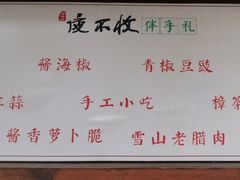 虔不收 伴手礼
酱海椒 青椒豆豉
蒜 手工小吃 樟茶
酱香萝卜脆 雪山老腊肉